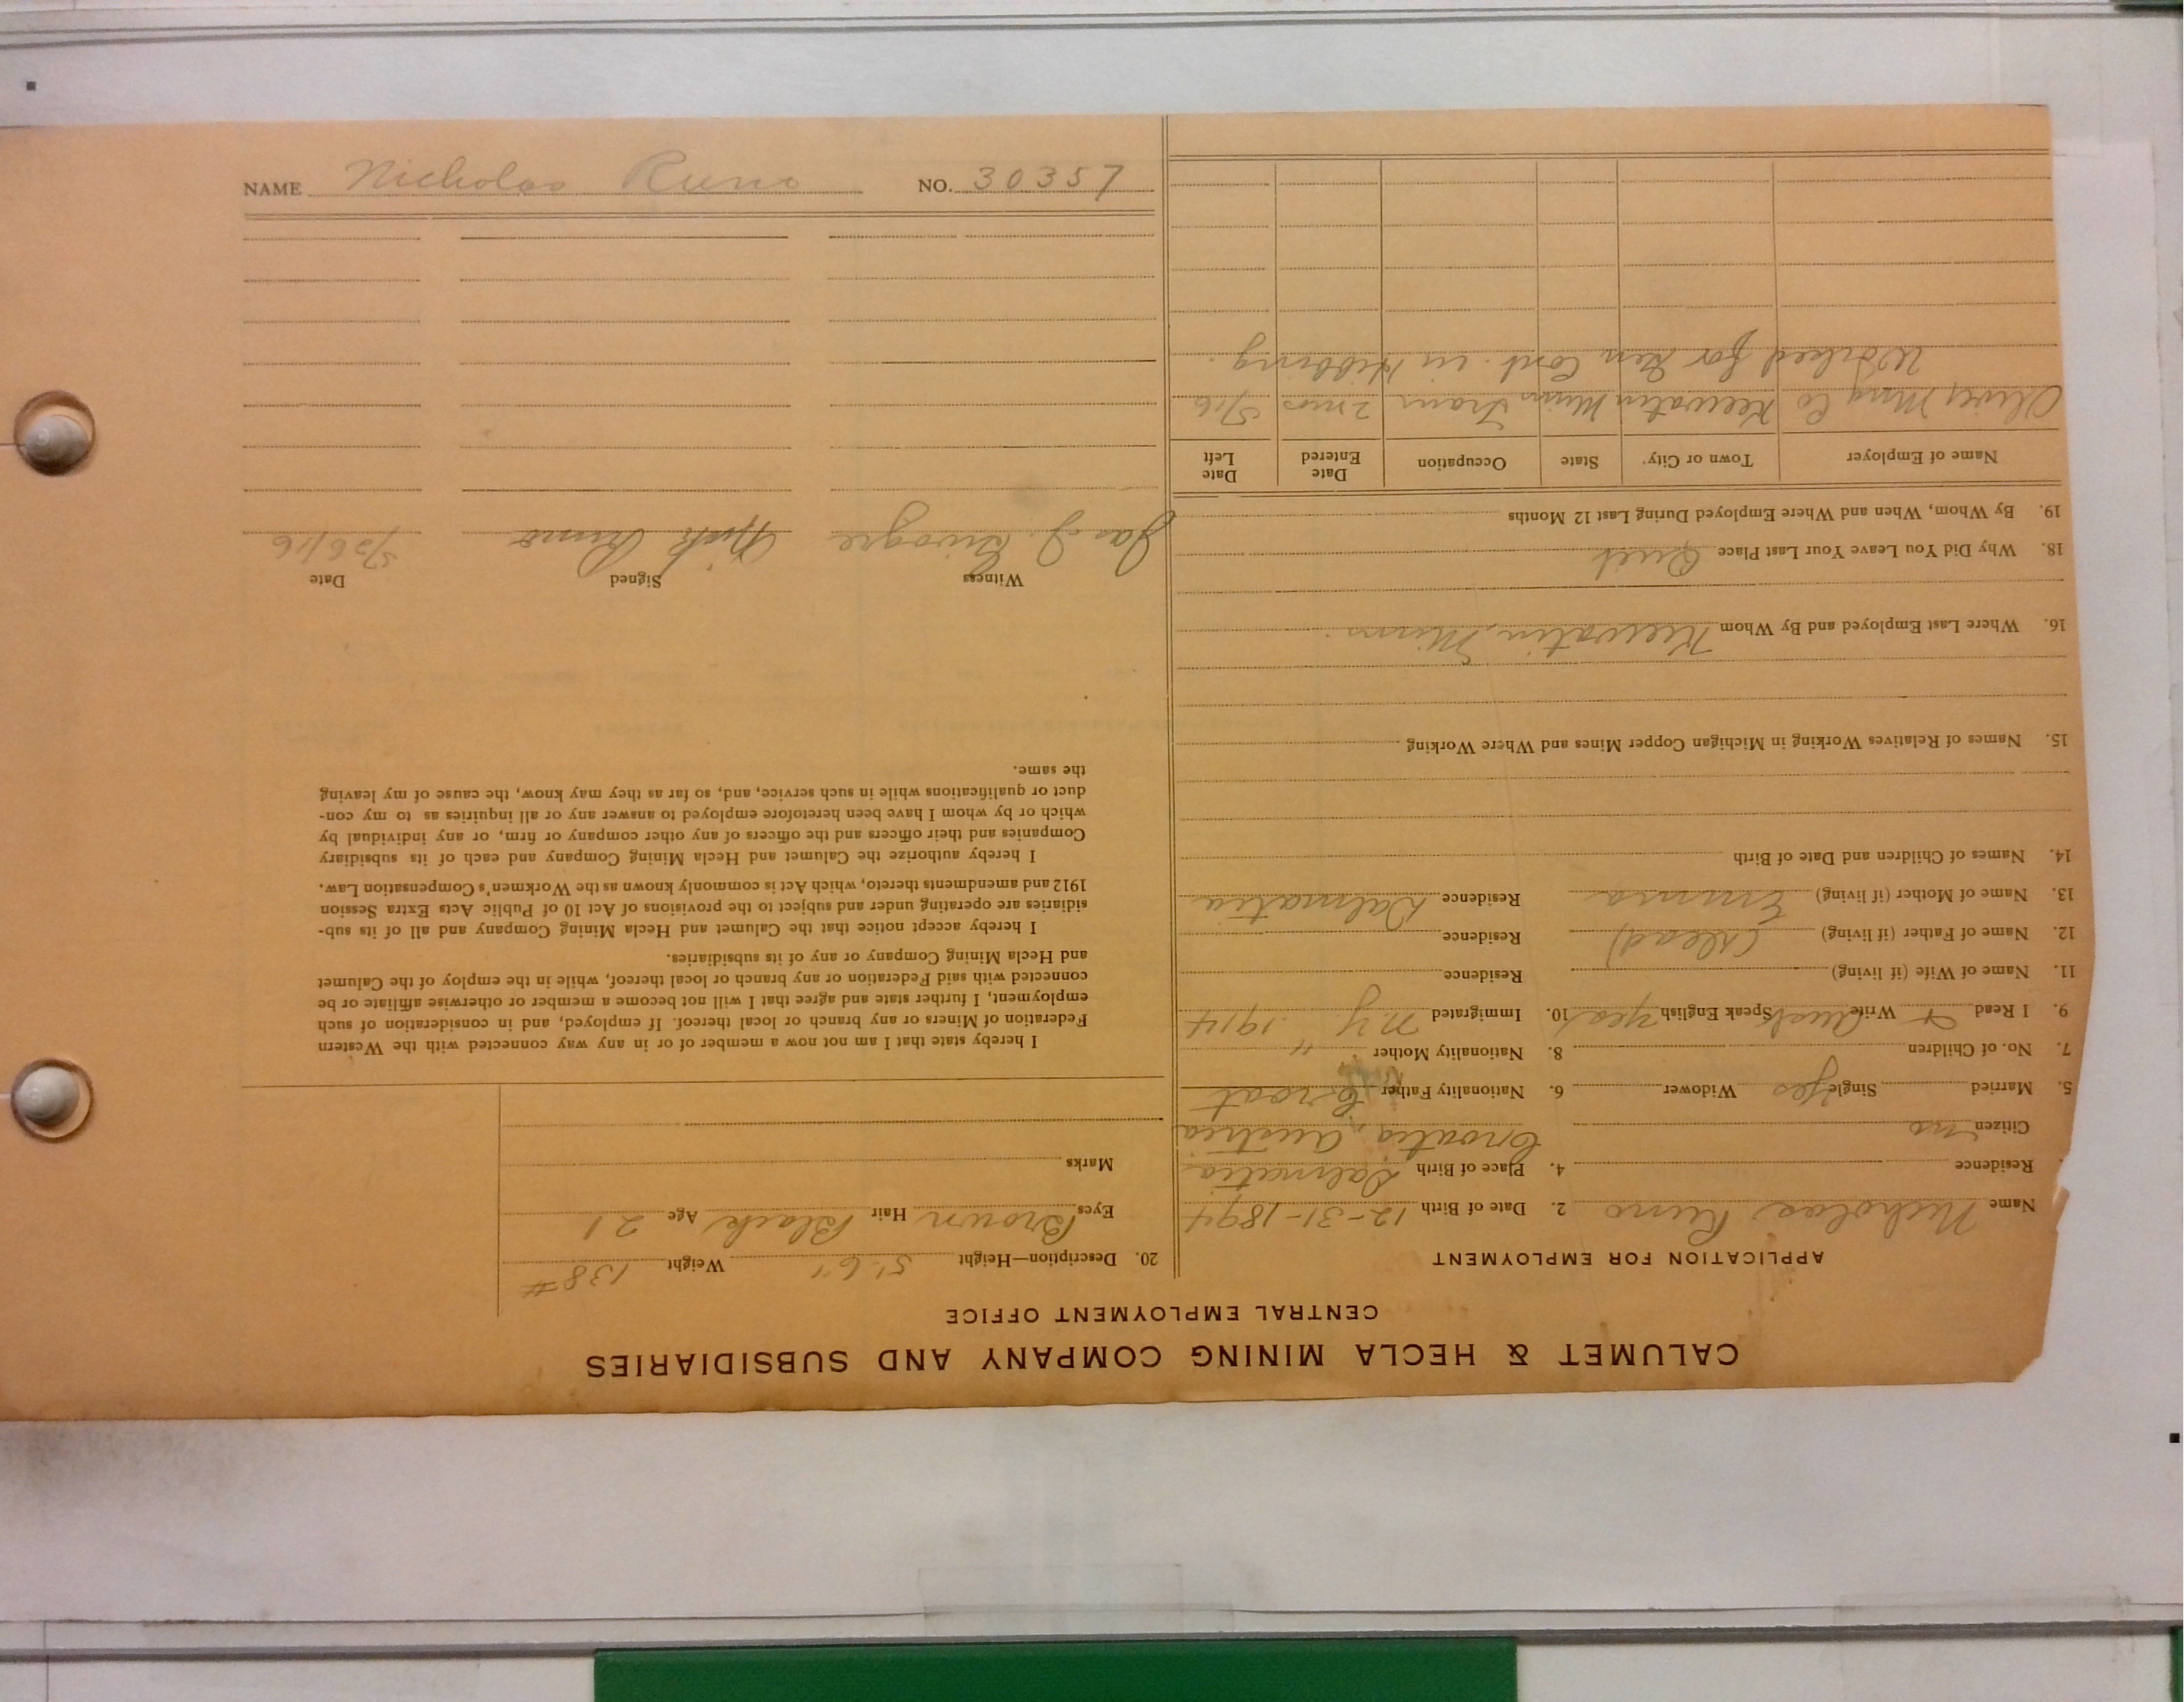 NAME Nicholas Runo NO. 30357
CALUMET & HECLA MINING COMPANY AND SUBSIDIARIES
CENTRAL EMPLOYMENT OFFICE
APPLICATION FOR EMPLOYMENT
Name Nicholas Runo 2. Date of Birth 12-31-1894
Residence 4. Place of Birth Dalmatia
Citizen no Croatia, Austria
5. Married Single Yes Widower 6. Nationality Father Croat
7. No. of Children 8. Nationality Mother "
9. I Read & Write Speak English Yes 10. Immigrated N.Y. 1914
11. Name of Wife (if living) Residence
12. Name of Father (if living) (dead) Residence
13. Name of Mother (if living) Emma Residence Dalmatia
14. Names of Children and Date of Birth
15. Names of Relatives Working in Michigan Copper Mines and Where Working
16. Where Last Employed and By Whom Keewatin, Minn.
18. Why Did You Leave Your Last Place Quit
19. By Whom, When and Where Employed During Last 12 Months
Name of Employer Town or City State Occupation Date Entered Date Left
Oliver Mng Co Keewatin Minn Tram 2 mos 5/16
Worked for Cont. in Hibbing.
20. Description—Height 5'.6" Weight 138#
Eyes Brown Hair Black Age 21
Marks
I hereby state that I am not now a member of or in any way connected with the Western
Federation of Miners or any branch or local thereof. If employed, and in consideration of such
employment, I further state and agree that I will not become a member or otherwise affiliate or be
connected with said Federation or any branch or local thereof, while in the employ of the Calumet
and Hecla Mining Company or any of its subsidiaries.
I hereby accept notice that the Calumet and Hecla Mining Company and all of its sub-
sidiaries are operating under and subject to the provisions of Act 10 of Public Acts Extra Session
1912 and amendments thereto, which Act is commonly known as the Workmen's Compensation Law.
I hereby authorize the Calumet and Hecla Mining Company and each of its subsidiary
Companies and their officers and the officers of any other company or firm, or any individual by
which or by whom I have been heretofore employed to answer any or all inquiries as to my con-
duct or qualifications while in such service, and, so far as they may know, the cause of my leaving
the same.
Witness Signed Date
Jas. J. Nick Runo 5/26/16